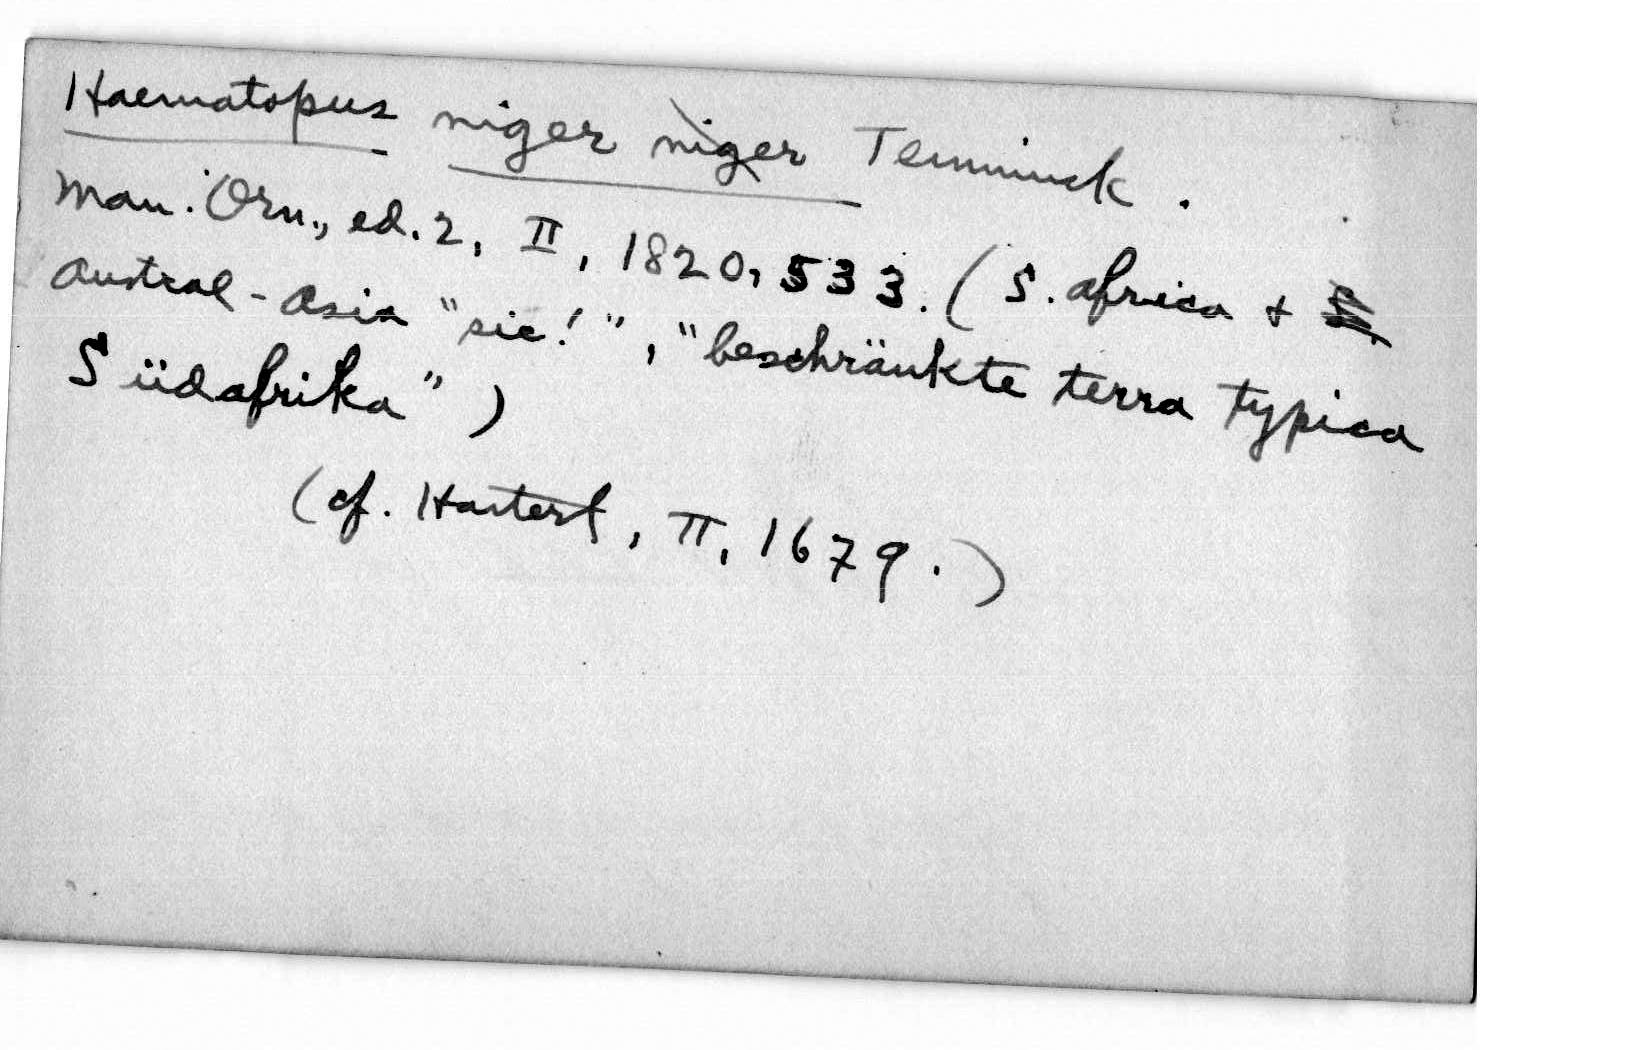 Haematopus niger niger Temminck.
Man. Orn., ed. 2, II, 1820, 533. (S. africa &
Austral-asia "sic!", "beschränkte terra typica
Südafrika")
(cf. Hartert, II, 1679.)